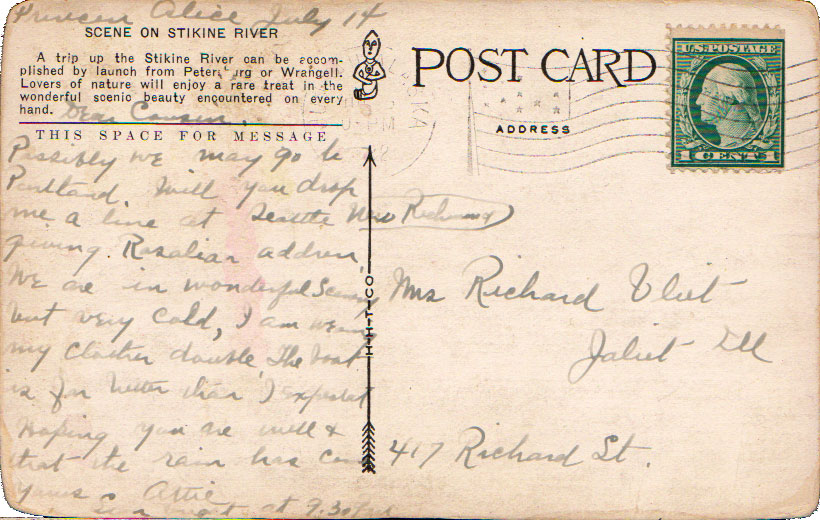 Princess Alice July 14
SCENE ON STIKINE RIVER
A trip up the Stikine River can be accom-
plished by launch from Petersburg or Wrangell.
Lovers of nature will enjoy a rare treat in the
wonderful scenic beauty encountered on every
hand.
Dear Cousin,
THIS SPACE FOR MESSAGE
Possibly we may go to
Portland. Will you drop
me a line at Seattle New Richmond
giving Rosalias address,
We are in wonderful Scenery
but very cold, I am wearing
my clothes double. The boat
is far better than I expected
Hoping you are well &
that the rain has come
yours Attie
at 9.30 P.M.
POST CARD
ADDRESS
U.S. POSTAGE
1 CENT 1
H-H-T-CO
Mrs Richard Vliet
Joliet Ill
417 Richard St.